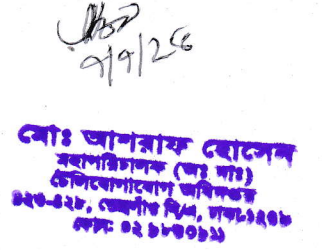 ৭/৭/২৫
মোঃ আশরাফ হোসেন
মহাপরিচালক (অঃ দাঃ)
টেলিযোগাযোগ অধিদপ্তর
৪২৩-৪২৮, তেজগাঁও শি/এ, ঢাকা-১২০৮
ফোন: ০২